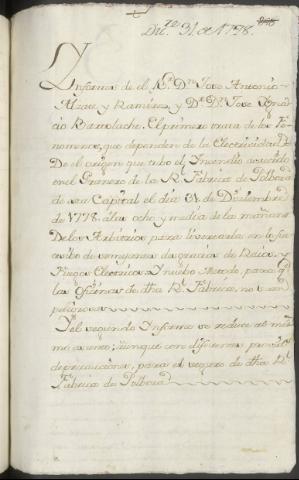 Dic.re 31. de 1778.
Ynforme de el B.r D.n Jose Antonio
Alzate y Ramirez, y D.r D.n Jose Ygna-
cio Bartolache. El primero trata de los Fe-
nomenos, que dependen de la Electricidad.
De el origen que tubo el Yncendio acaecido
en el Granero de la R.l Fabrica de Polbora
de esta Capital el dia de Diciembre
de 1778. á las ocho y media de la mañana
De los Arbitrios para livertarla en lo suc-
cesibo de semejantes desgracias de Raios, y
Fuegos Electricos. Y nuebo Metodo, para q.e
las Oficinas de dha R.l Fabrica, no sean
peligrosas
Y el segundo Ynforme se reduce al mis-
mo asunto; aunque con diferentes
de precauciones, para el seguro de dha R.l
Fabrica de Polbora